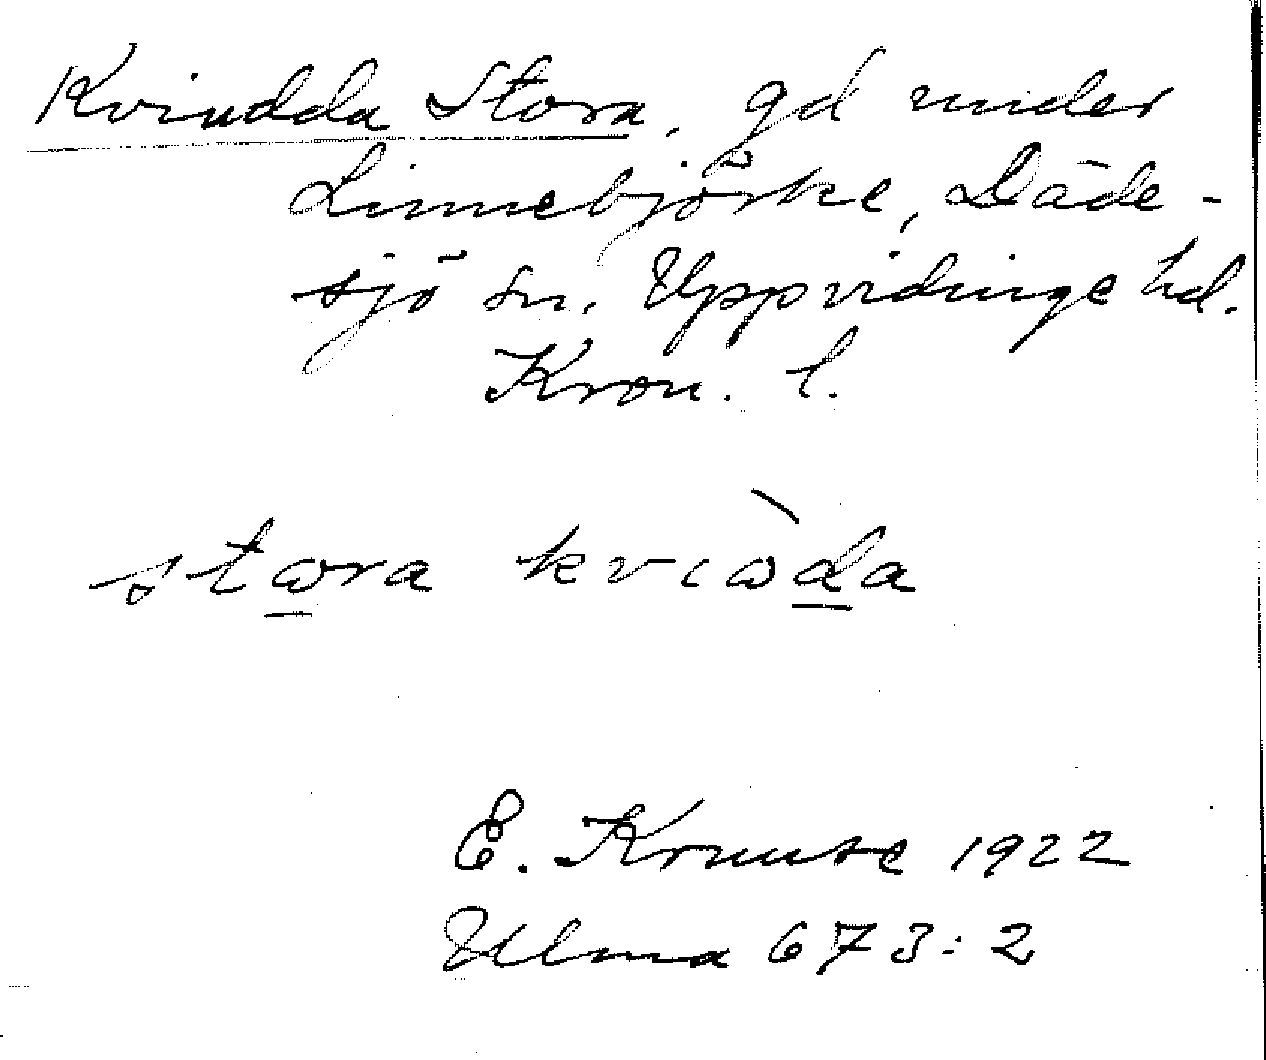 Kvindda Stora, gd under
Linnebjörke, Däde-
sjö sn. Uppvidinge hd.
Kron. l.
stωra kvιωda
E. Kruuse 1922
Ulma 673:2